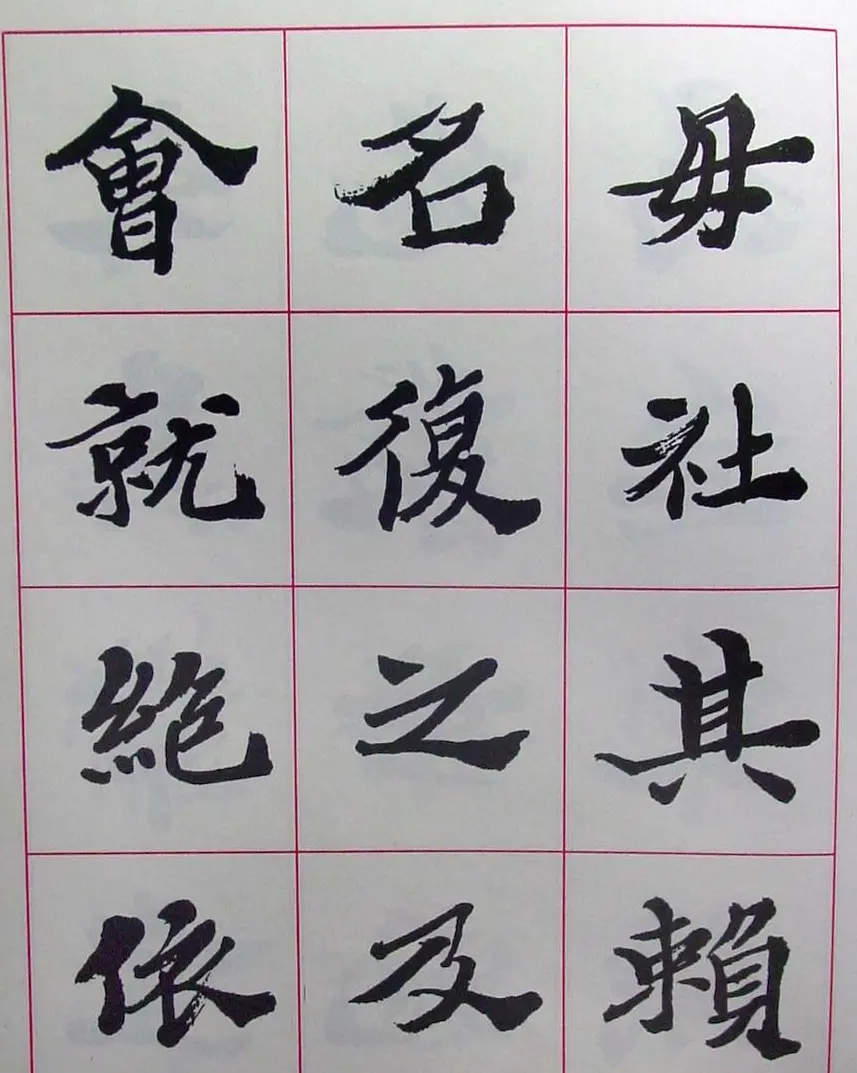 毋社其賴
名復之及
會就絶依